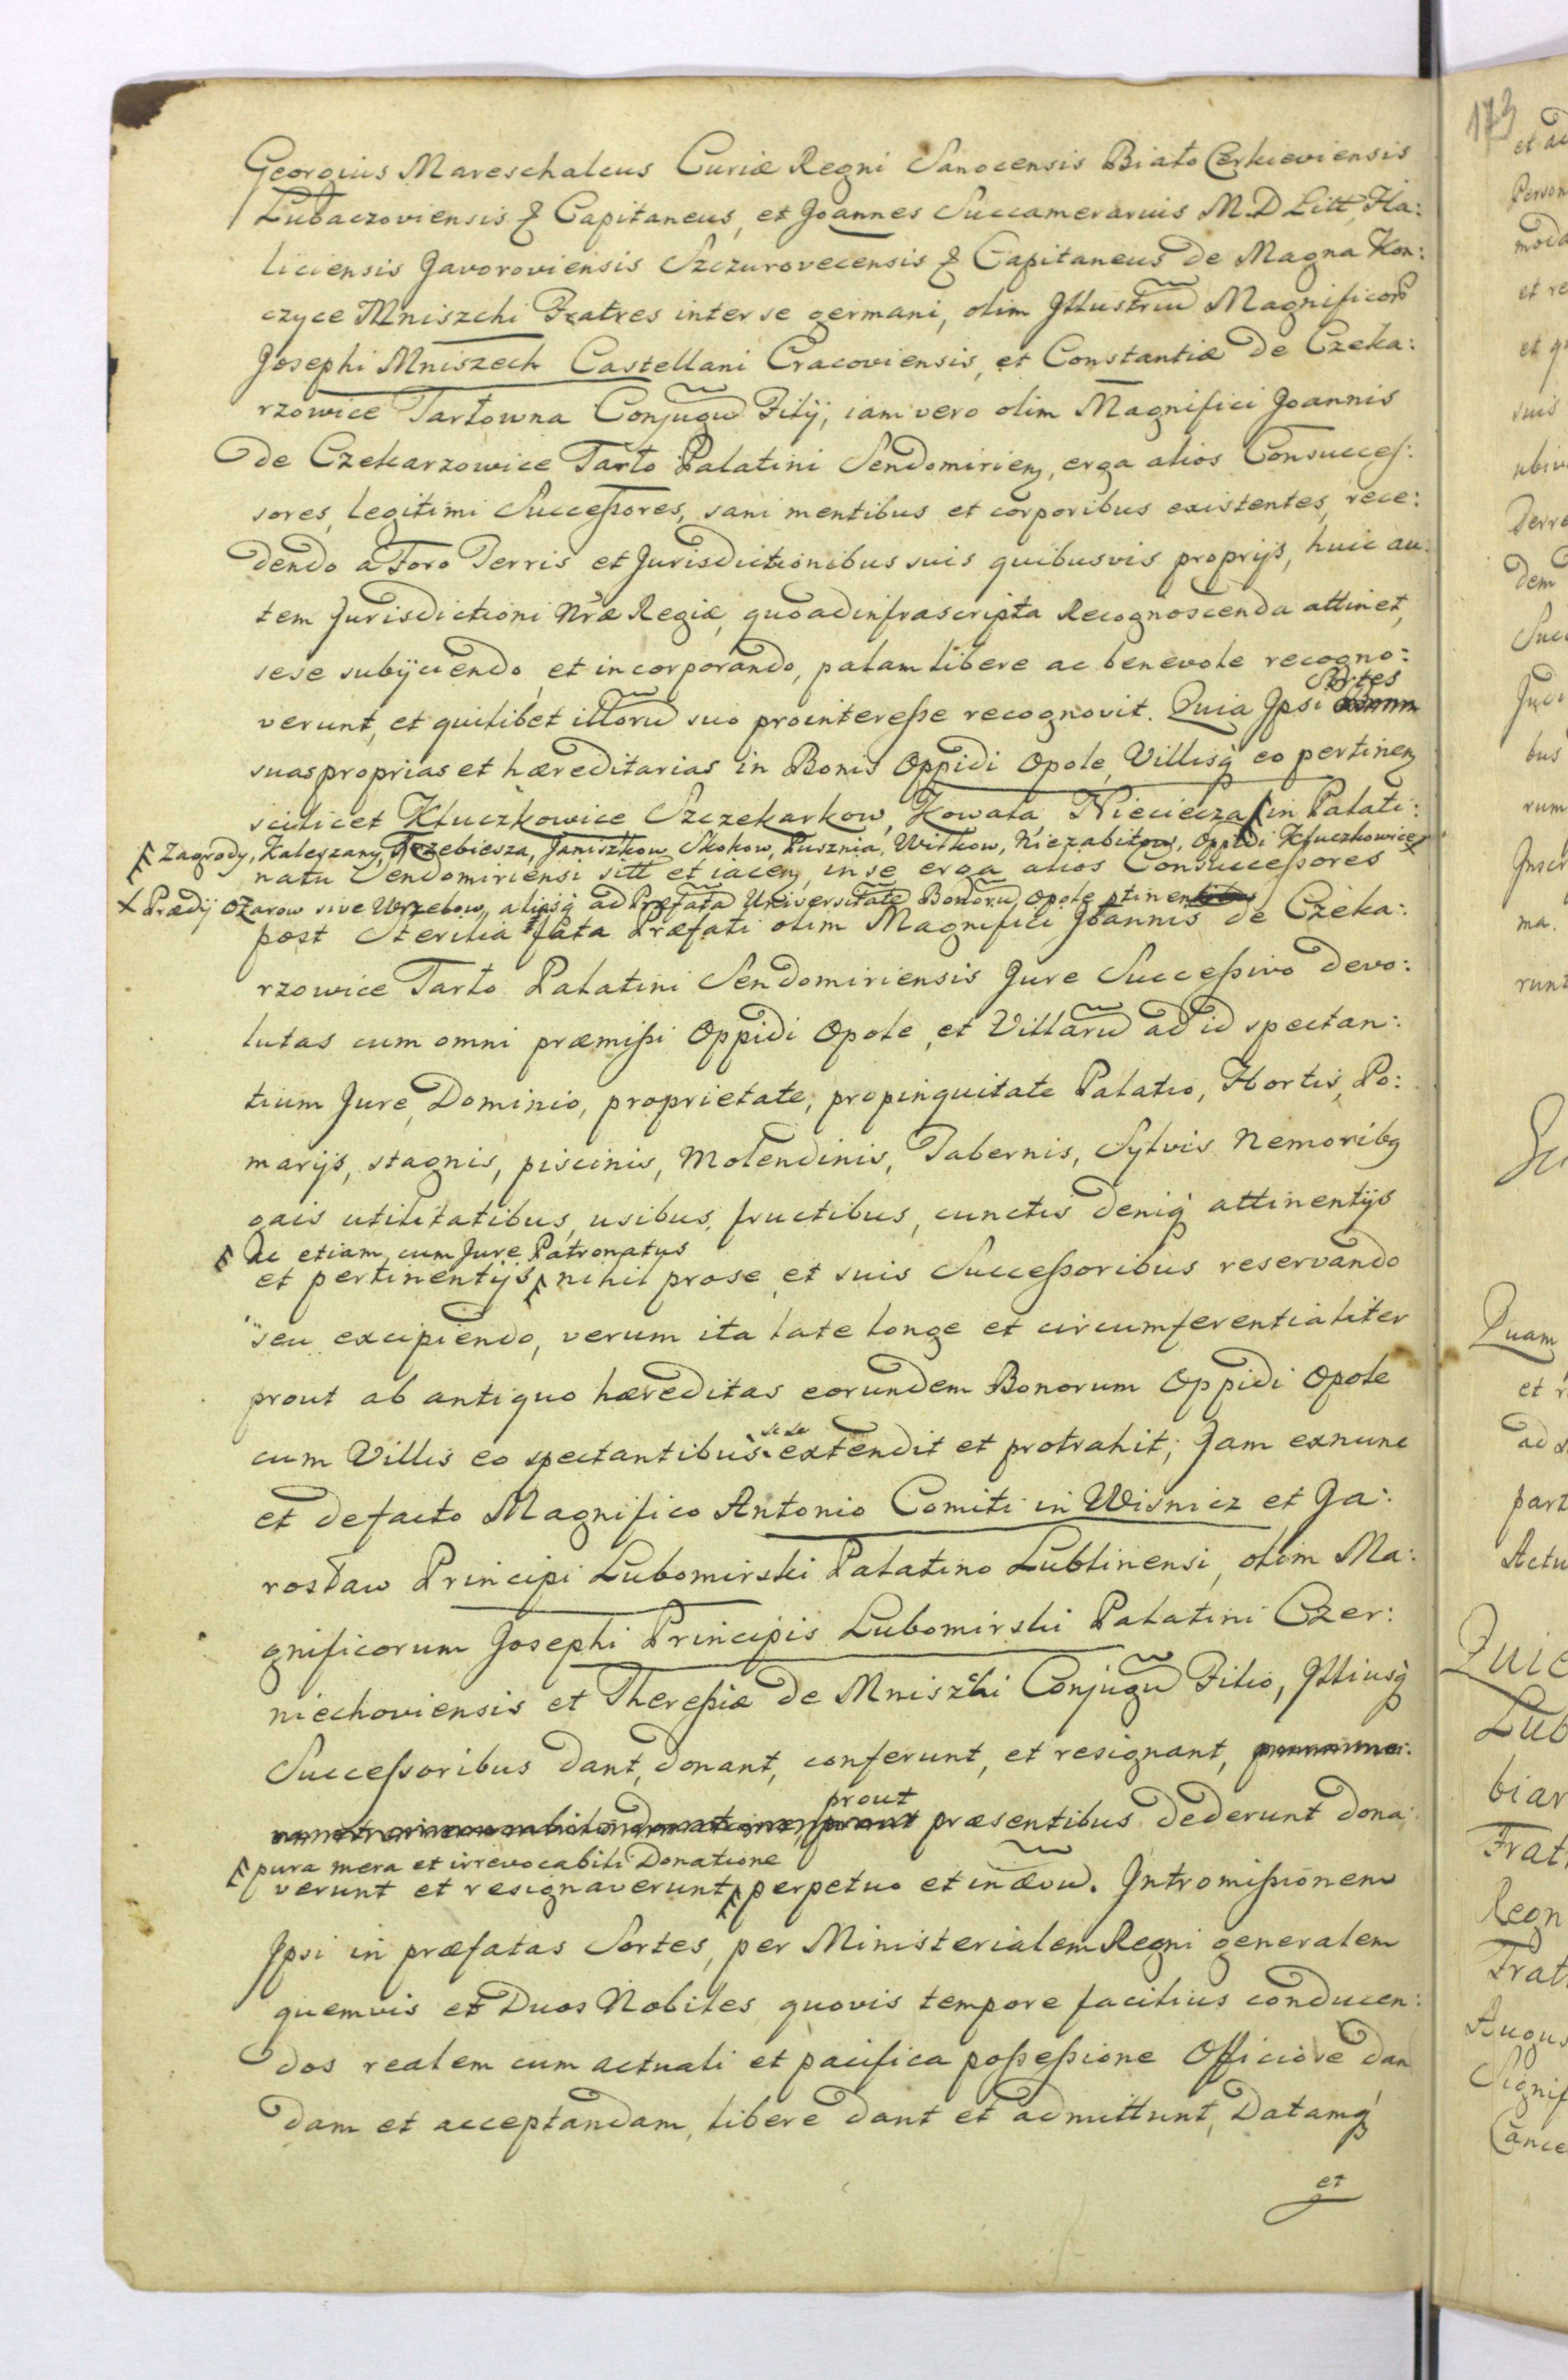 Georgius Mareschalcus Curiæ Regni Sanocensis Biało Cerkieviensis
Lubaczoviensis & Capitaneus, et Joannes Succamerarius M. D. Litt. Ha:
liciensis Javoroviensis Szczurovecensis & Capitaneus de Magna Kon:
czyce Mniszchi Fratres inter se germani, olim Illustriũ Magnificorũ
Josephi Mniszech Castellani Cracoviensis, et Constantiæ de Czeka:
rzowice Tarłowna Conjugũ Filij, iam vero olim Magnifici Joannis
de Czekarzowice Tarło Palatini Sendomirien, erga alios Consucces:
sores, legitimi Successores, sani mentibus et corporibus existentes, rece:
dendo a Foro Terris et Jurisdictionibus suis quibusvis proprijs, huic au:
tem Jurisdictioni Nræ Regiæ, quo ad infrascripta Recognoscenda attinet,
sese subijciendo et incorporando, palam libere ac benevole recogno:
Sortes
verunt, et quilibet illorũ suo pro interesse recognovit. Quia Ipsi
suas proprias et hæreditarias in Bonis Oppidi Opole, Villisq eo pertinen
scilicet Kłuczkowice Szczekarkow, Kowala Nieciecza in Palati:
Zagrody, Kaleszany, Trzebiesza, Janiszkow Skokow, Pusznia, Wilkow, Niezabitow, Oppidi Kłuczkowice
natu Sendomiriensi sitt et iacen, in se erga alios Consuccessores
Prædij Ożarow sive Wrzelow, aliasq ad Præfatã Universitatẽ Bonorũ Opole ptinen
post Sterilia fata Præfati olim Magnifici Joannis de Czeka:
rzowice Tarło Palatini Sendomiriensis Jure Successivo devo:
lutas cum omni præmissi Oppidi Opole, et Villarũ ad id spectan:
tium Jure, Dominio, proprietate, propinquitate Palatio, Hortis, Po:
marijs, stagnis, piscinis, Molendinis, Tabernis, Sylvis Nemoribq
gais utilitatibus, usibus, fructibus, cunctis deniq attinentijs
Ac etiam cum Jure Patronatus
et pertinentijs, nihil pro se et suis Successoribus reservando
seu excipiendo, verum ita late longe et circumferentialiter
prout ab antiquo hæreditas eorundem Bonorum Oppidi Opole
sese
cum Villis eo spectantibus extendit et protrahit; Jam ex nunc
et de facto Magnifico Antonio Comiti in Wisnicz et Ja:
rosław Principi Lubomirski Palatino Lublinensi, olim Ma:
gnificorum Josephi Principis Lubomirski Palatini Czer:
niechoviensis et Theresiæ de Mniszchi Conjugũ Filio, Illiusq
Successoribus dant, donant, conferunt, et resignant,
prout
præsentibus dederunt dona
pura mera et irrevocabili Donatione
verunt et resignaverunt, perpetuo et in ævũ. Intromissionem
Ipsi in præfatas Sortes, per Ministerialem Regni generalem
quemvis et Duos Nobiles quovis tempore facilius conducen:
dos realem cum actuali et pacifica possessione Officiose dan
dam et acceptandam, libere dant et admittunt, Datamq
et
173